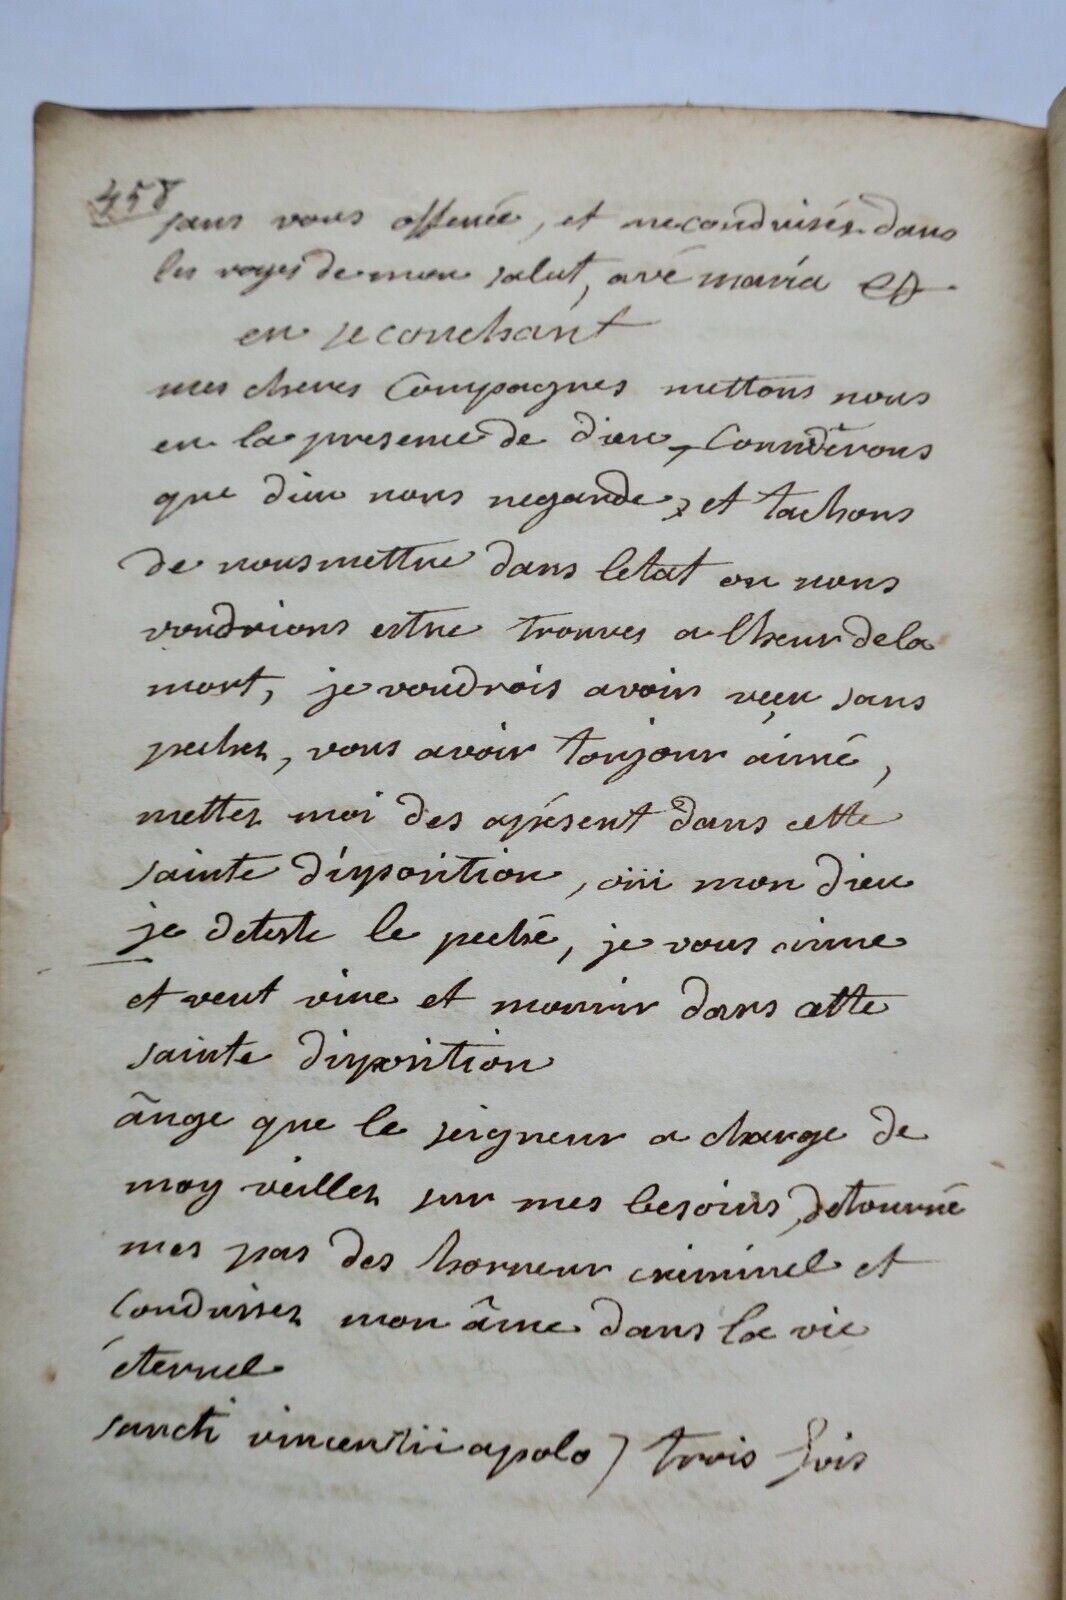 458
sans vous offencé, et me conduisés dans
les voyes de mon salut, avé maria &
en se couchant
mes cheres Compagnes mettons nous
en la presence de dieu, Considêrons
que dieu nous regarde, et tachons
de nous mettre dans letat ou nous
voudrions estre trouves a lheur de la
mort, je voudrois avoir veçu sans
pechez, vous avoir toujour aimé,
mettez moi des aprésent dans cette
sainte disposition, oiii mon dieu
je deteste le peché, je vous aime
et veut vivre et mourir dans cette
sainte disposition
ânge que le seigneur a charge de
moy veillez sur mes besoins, detourné
mes pas des horreur criminel et
Conduissez mon âme dans la vie
éternel
sancti vincentii apolo) trois fois